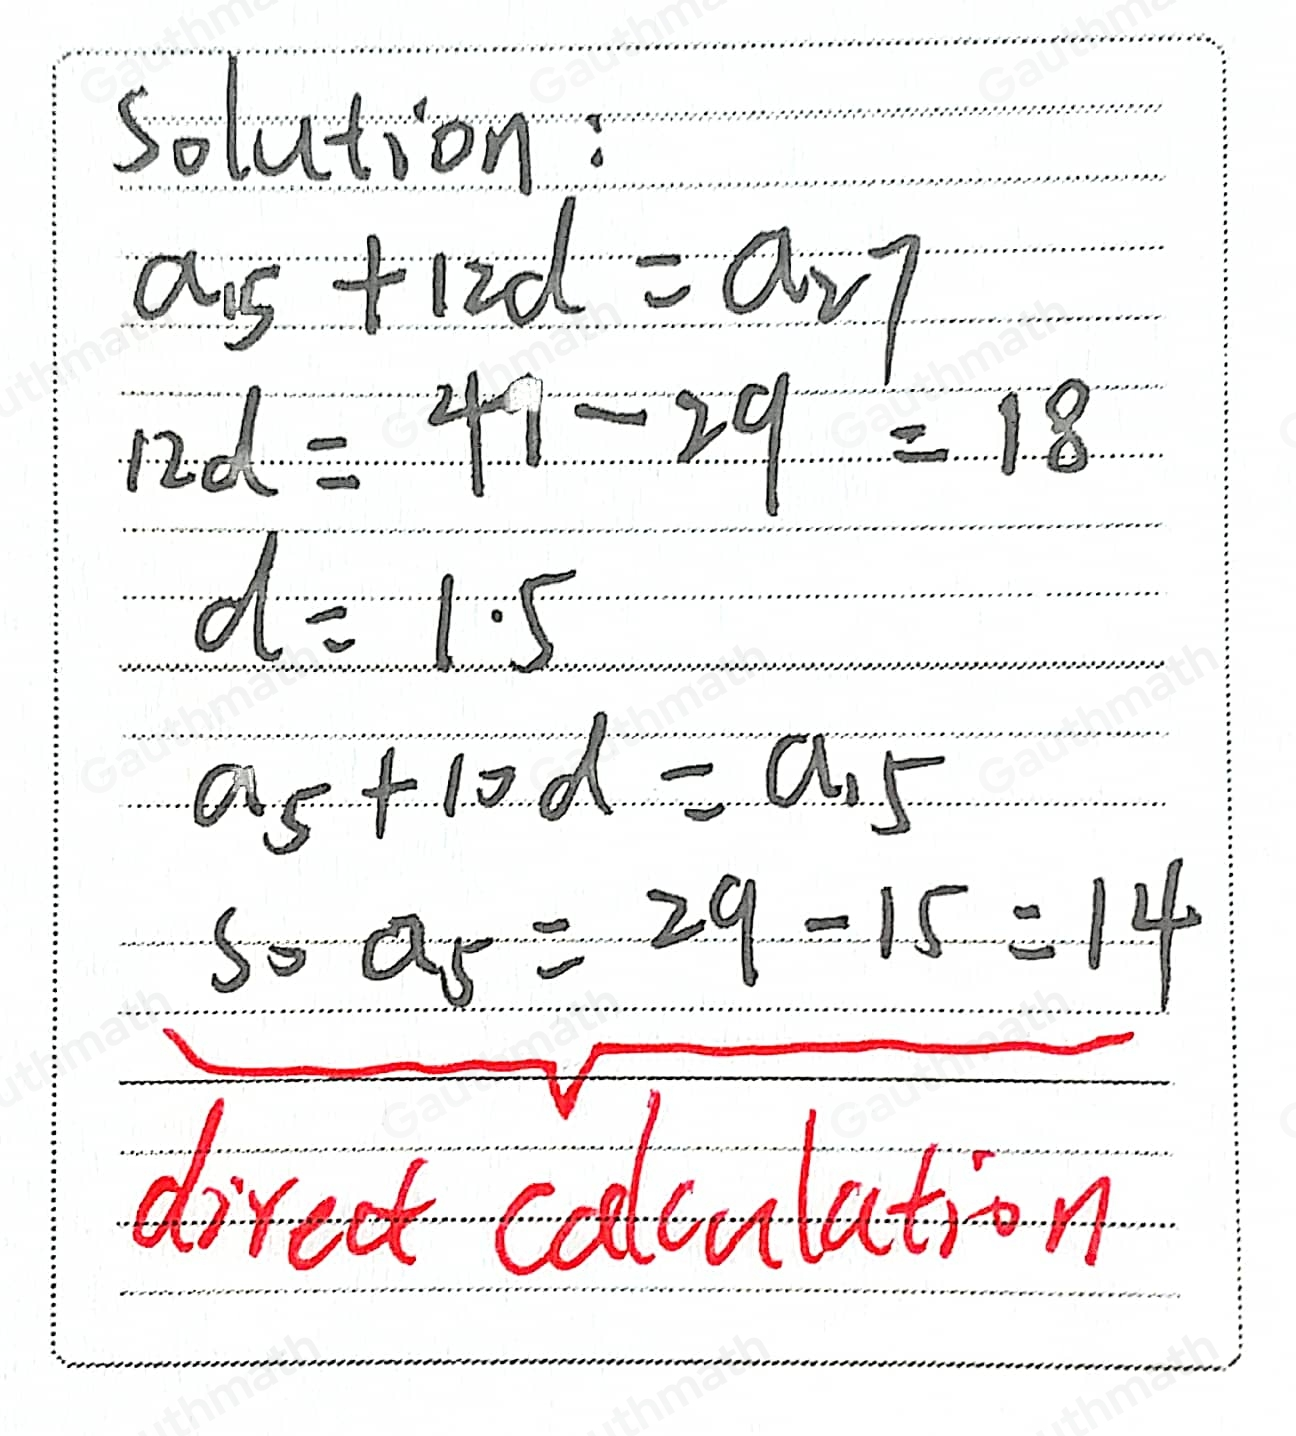 Solution:
a₁₅ + 12d = a₂₇
12d = 47 - 29 = 18
d = 1.5
a₅ + 10d = a₁₅
So a₅ = 29 - 15 = 14
direct calculation
Gauthmath